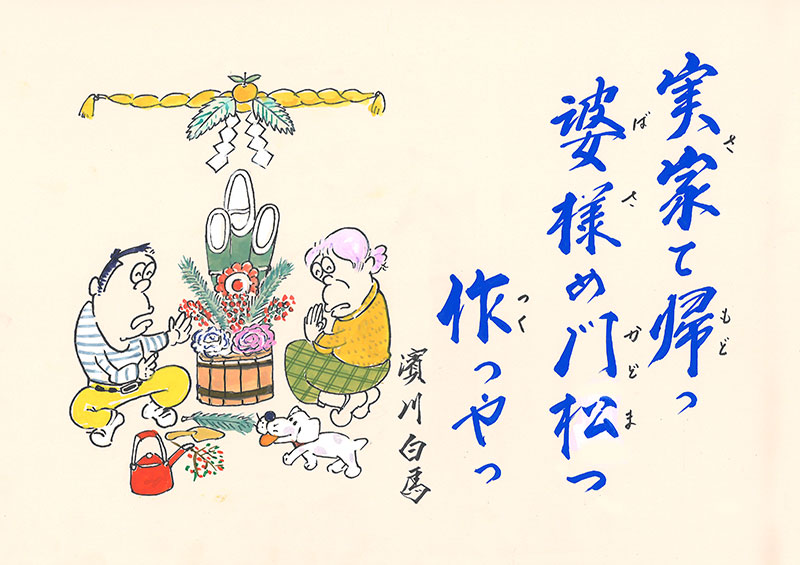 実家て帰っ
さ
もど
婆様め門松っ
ばさ
かどま
作っやっ
つく
濱川白馬